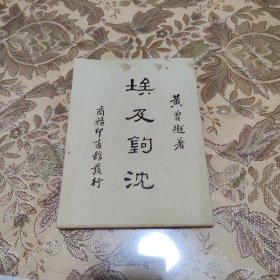 黄曾樾著
埃及鉤沈
商務印書館發行